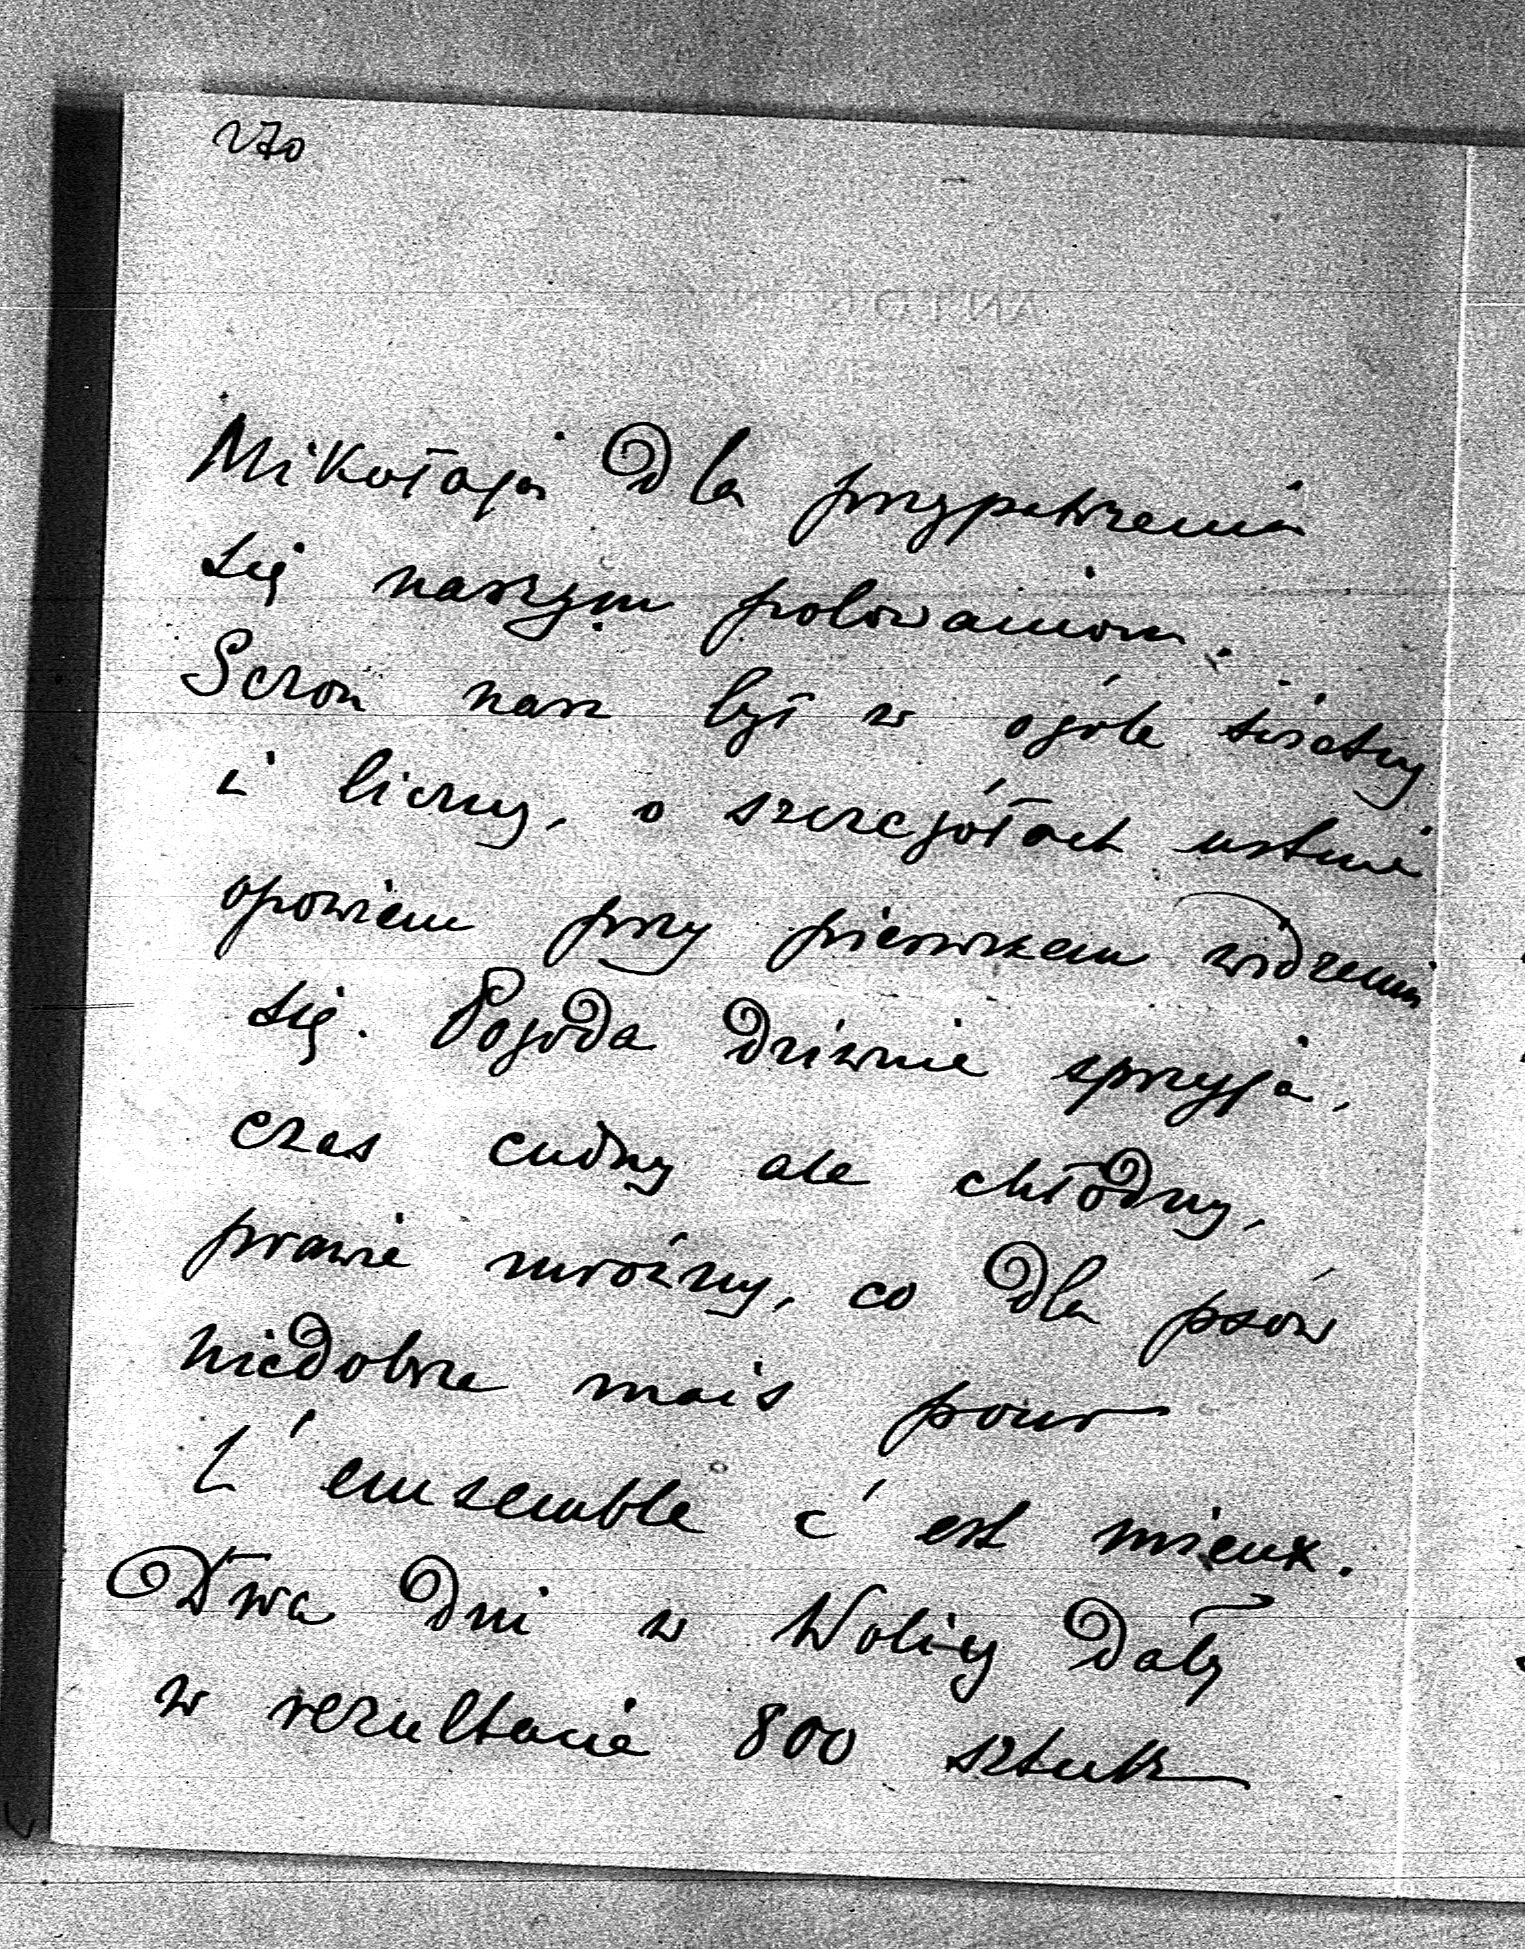 270
Mikołaja dla przypatrzenia
się naszym polowaniom.
Sezon nasz był w ogóle świetny
i liczny, o szczegółach ustnie
opowiem przy pierwszem widzeniu
się. Pogoda dziwnie sprzyja,
czas cudny ale chłodny,
prawie mroźny, co dla psów
niedobrze mais pour
l'ensemble c'est mieux.
Dwa dni w Wolicy dały
w rezultacie 800 sztuk